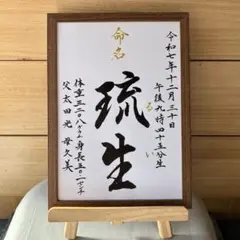 令和七年十二月三十日
午後九時四十五分生
命名
琉生
るい
体重三二〇八グラム 身長五〇一センチ
父太田光 母久美